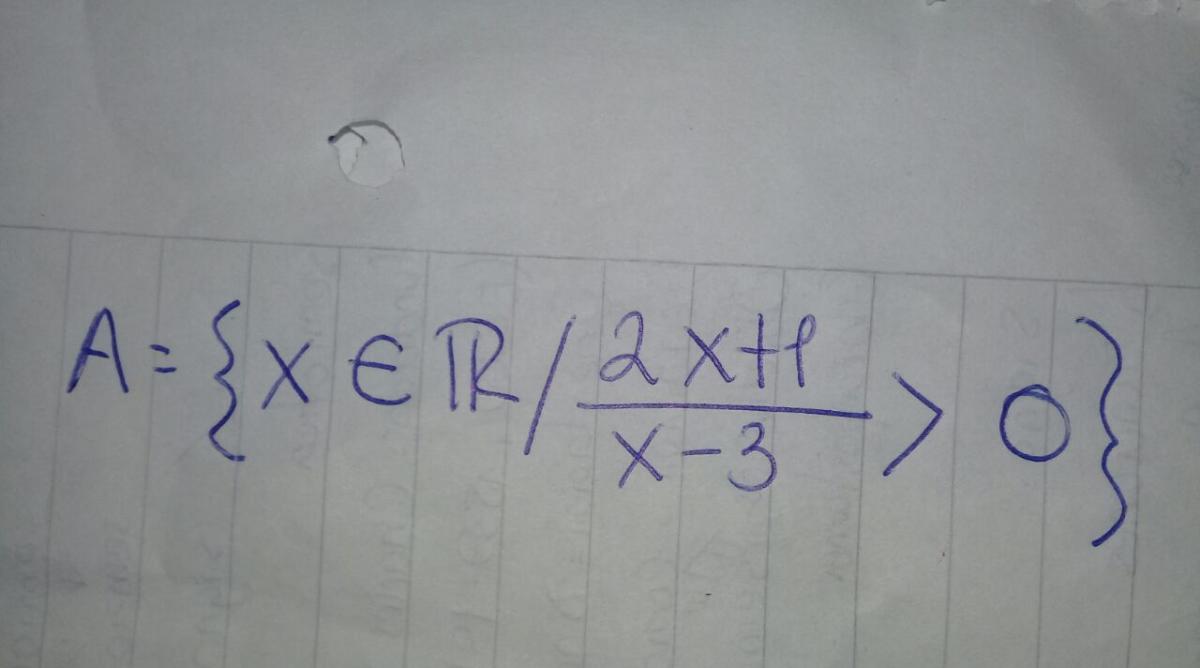 A = {x ∈ ℝ / \frac{2x+1}{x-3} > 0}